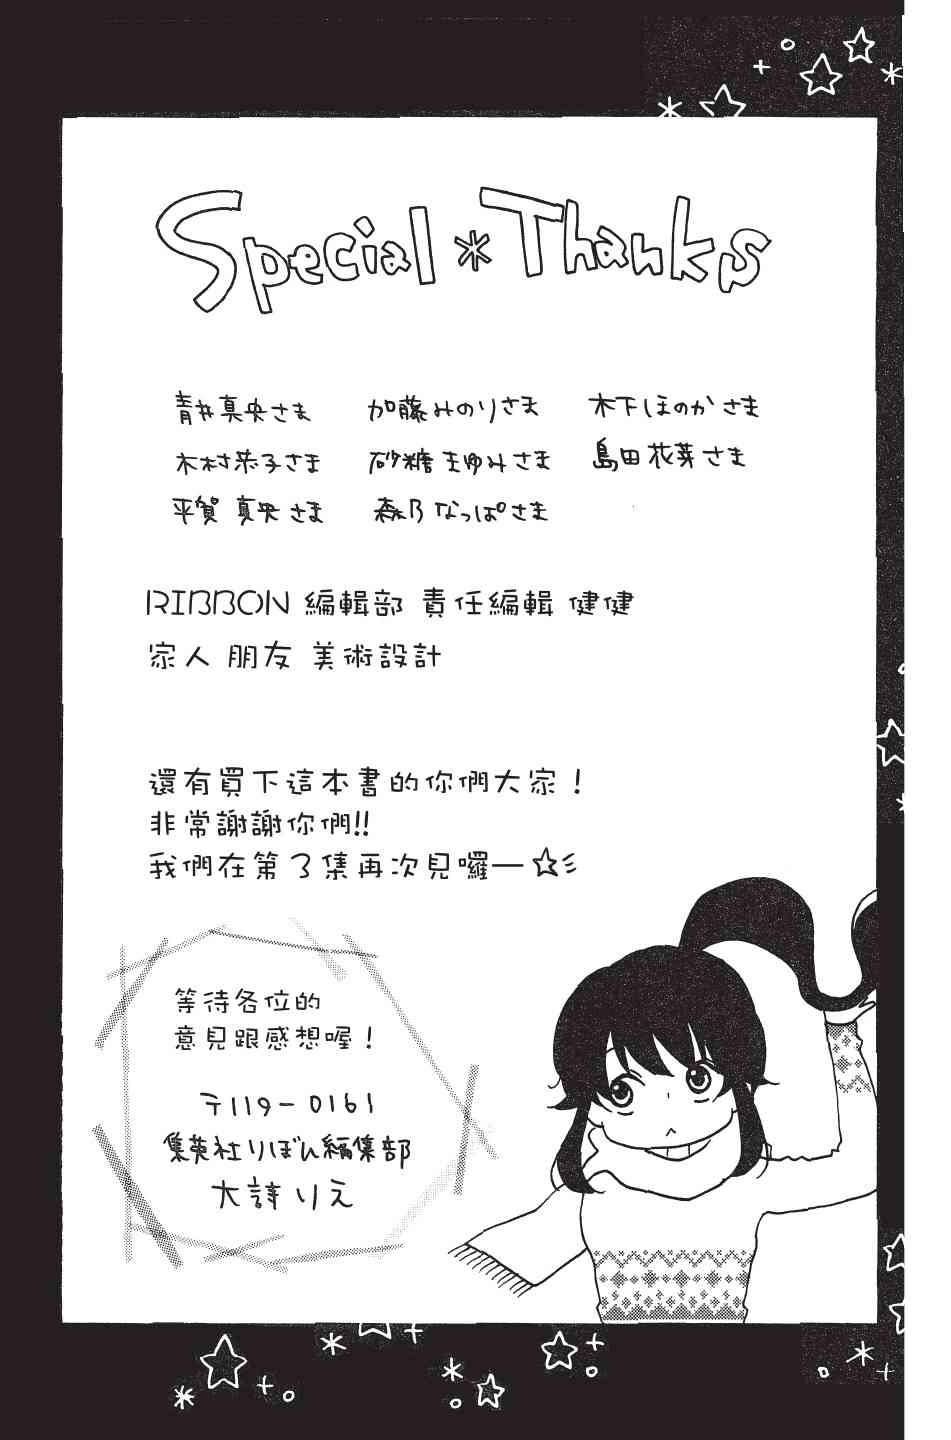 Special * Thanks
青井真央さま 加藤みのりさま 木下ほのかさま
木村恭子さま 砂糖まゆみさま 島田花芽さま
平賀真央さま 森乃なっぱさま
RIBBON 編輯部 責任編輯 健健
家人 朋友 美術設計
還有買下這本書的你們大家！
非常謝謝你們!!
我們在第3集再次見囉—☆彡
等待各位的
意見跟感想喔！
〒119-0161
集英社りぼん編集部
大詩りえ